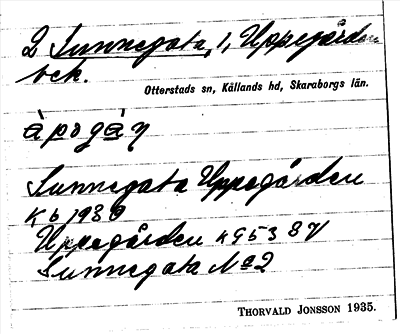 2 Sunnegata, 1, Uppegården
bek.
Otterstads sn, Kållands hd, Skaraborgs län.
àpogàn
Sunnegata Uppegården
Kb 1930
Uppegården
Sunnegata No2
THORVALD JONSSON 1935.